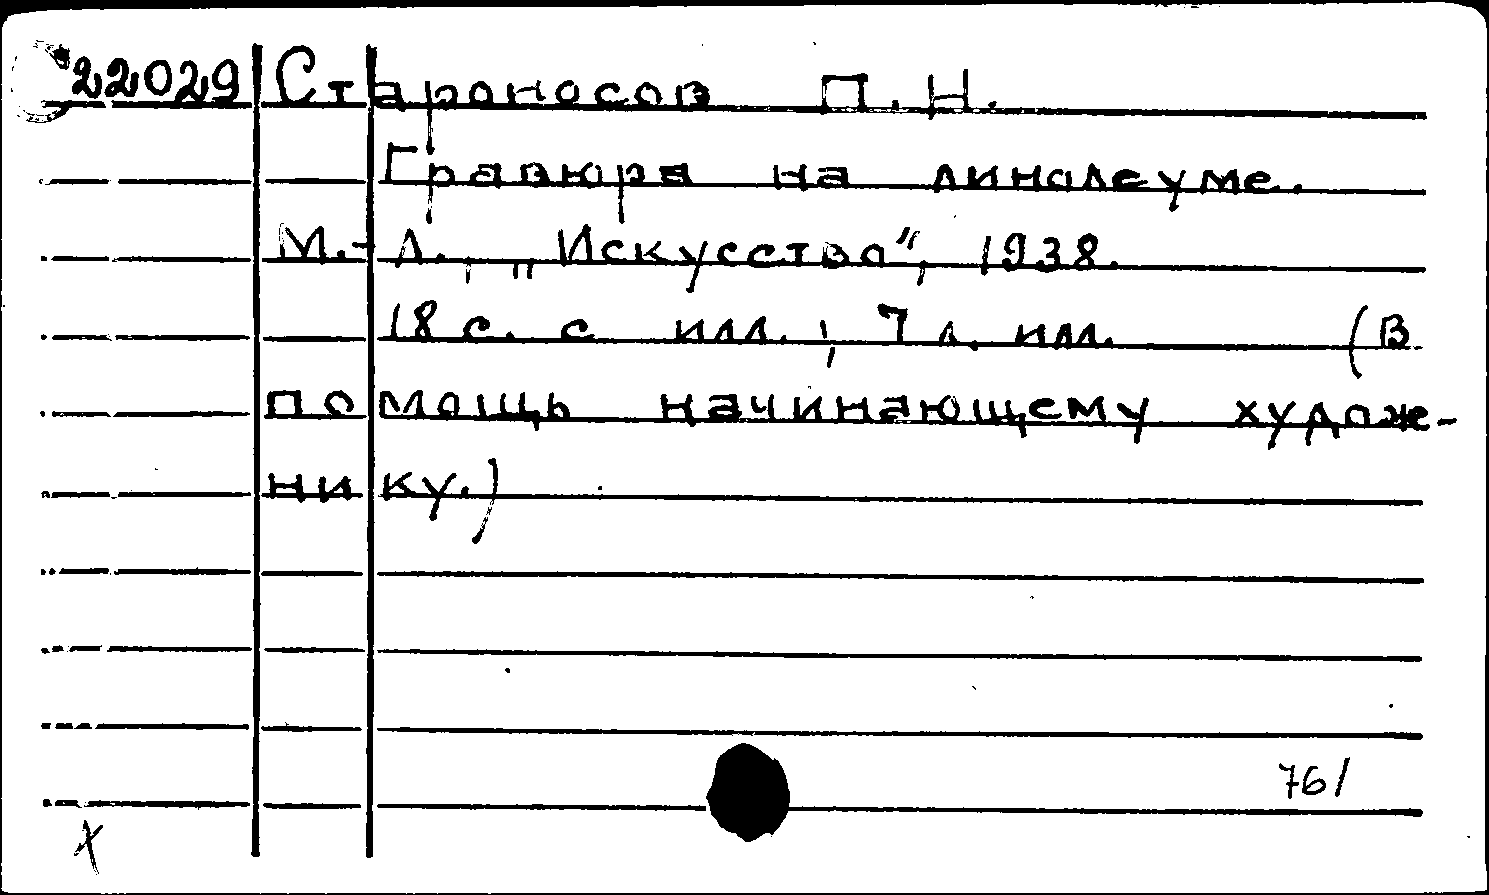 22029 Староносов П.Н.
Гравюра на линолеуме.
М.-Л., „Искусство", 1938.
18 с. с илл.; 7 л. илл. (В
помощь начинающему художе-
нику.)
76/